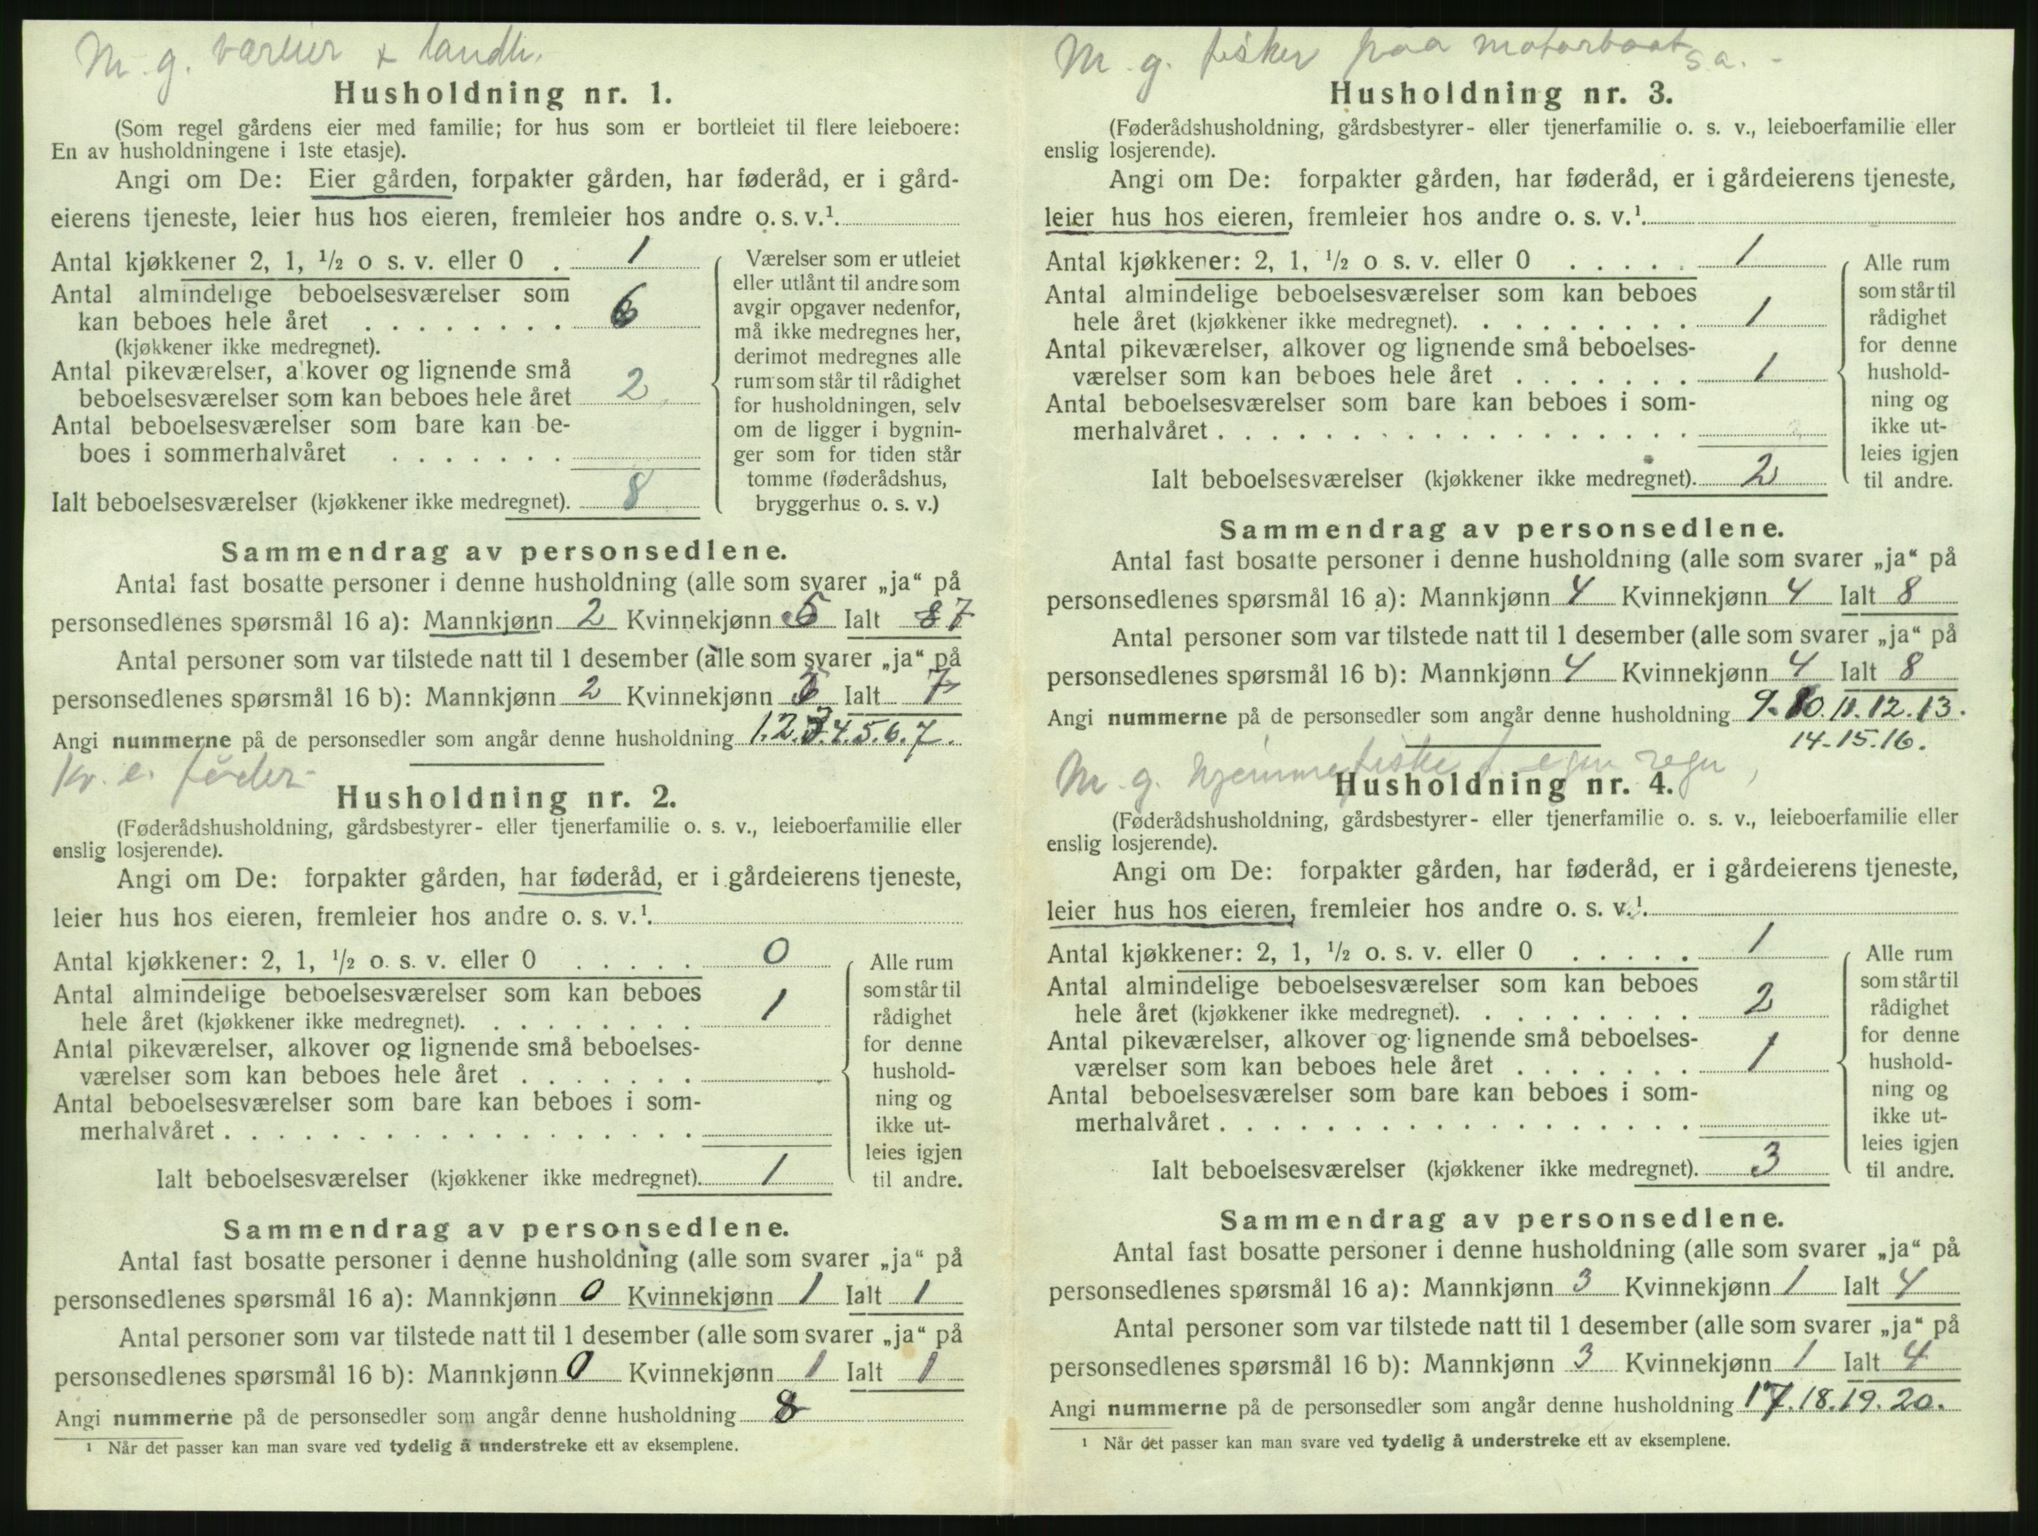 M. g. væreier & landh.
Husholdning nr. 1.
(Som regel gårdens eier med familie; for hus som er bortleiet til flere leieboere:
En av husholdningene i 1ste etasje).
Angi om De: Eier gården, forpakter gården, har føderåd, er i gård-
eierens tjeneste, leier hus hos eieren, fremleier hos andre o. s. v.¹
Antal kjøkkener 2, 1, ½ o s. v. eller 0 . 1
Antal almindelige beboelsesværelser som
kan beboes hele året . . . . . . . . 6
(kjøkkener ikke medregnet).
Antal pikeværelser, alkover og lignende små
beboelsesværelser som kan beboes hele året 2
Antal beboelsesværelser som bare kan be-
boes i sommerhalvåret . . . . . . .
Ialt beboelsesværelser (kjøkkener ikke medregnet). 8
Værelser som er utleiet
eller utlånt til andre som
avgir opgaver nedenfor,
må ikke medregnes her,
derimot medregnes alle
rum som står til rådighet
for husholdningen, selv
om de ligger i bygnin-
ger som for tiden står
tomme (føderådshus,
bryggerhus o. s. v.)
Sammendrag av personsedlene.
Antal fast bosatte personer i denne husholdning (alle som svarer „ja“ på
personsedlenes spørsmål 16 a): Mannkjønn 2 Kvinnekjønn 5 Ialt 8 7
Antal personer som var tilstede natt til 1 desember (alle som svarer „ja“ på
personsedlenes spørsmål 16 b): Mannkjønn 2 Kvinnekjønn 5 Ialt 7
Angi nummerne på de personsedler som angår denne husholdning 1.2.3.4.5.6.7.
Kv. e. føder-
Husholdning nr. 2.
(Føderådshusholdning, gårdsbestyrer- eller tjenerfamilie o. s. v., leieboerfamilie eller
enslig losjerende).
Angi om De: forpakter gården, har føderåd, er i gårdeierens tjeneste,
leier hus hos eieren, fremleier hos andre o. s. v.¹
Antal kjøkkener: 2, 1, ½ o. s. v. eller 0 . . . . . 0
Antal almindelige beboelsesværelser som kan beboes
hele året (kjøkkener ikke medregnet). . . . . . . . . 1
Antal pikeværelser, alkover og lignende små beboelses-
værelser som kan beboes hele året . . . . . . .
Antal beboelsesværelser som bare kan beboes i som-
merhalvåret . . . . . . . . . . . . . . . . . .
Ialt beboelsesværelser (kjøkkener ikke medregnet). 1
Alle rum
som står til
rådighet
for denne
hushold-
ning og
ikke ut-
leies igjen
til andre.
Sammendrag av personsedlene.
Antal fast bosatte personer i denne husholdning (alle som svarer „ja“ på
personsedlenes spørsmål 16 a): Mannkjønn 0 Kvinnekjønn 1 Ialt 1
Antal personer som var tilstede natt til 1 desember (alle som svarer „ja“ på
personsedlenes spørsmål 16 b): Mannkjønn 0 Kvinnekjønn 1 Ialt 1
Angi nummerne på de personsedler som angår denne husholdning 8
¹ Når det passer kan man svare ved tydelig å understreke ett av eksemplene.
M. g. fisker paa motorbaat s.a. -
Husholdning nr. 3.
(Føderådshusholdning, gårdsbestyrer- eller tjenerfamilie o. s. v., leieboerfamilie eller
enslig losjerende).
Angi om De: forpakter gården, har føderåd, er i gårdeierens tjeneste,
leier hus hos eieren, fremleier hos andre o. s. v.¹
Antal kjøkkener: 2, 1, ½ o s. v. eller 0 . . . . . 1
Antal almindelige beboelsesværelser som kan beboes
hele året (kjøkkener ikke medregnet). . . . . . . . . 1
Antal pikeværelser, alkover og lignende små beboelses-
værelser som kan beboes hele året . . . . . . . 1
Antal beboelsesværelser som bare kan beboes i som-
merhalvåret . . . . . . . . . . . . . . . . . .
Ialt beboelsesværelser (kjøkkener ikke medregnet). 2
Alle rum
som står til
rådighet
for denne
hushold-
ning og
ikke ut-
leies igjen
til andre.
Sammendrag av personsedlene.
Antal fast bosatte personer i denne husholdning (alle som svarer „ja“ på
personsedlenes spørsmål 16 a): Mannkjønn 4 Kvinnekjønn 4 Ialt 8
Antal personer som var tilstede natt til 1 desember (alle som svarer „ja“ på
personsedlenes spørsmål 16 b): Mannkjønn 4 Kvinnekjønn 4 Ialt 8
Angi nummerne på de personsedler som angår denne husholdning 9.10.11.12.13.
14.15.16.
M. g. hjemmefiske f. egn regn,
Husholdning nr. 4.
(Føderådshusholdning, gårdsbestyrer- eller tjenerfamilie o. s. v., leieboerfamilie eller
enslig losjerende).
Angi om De: forpakter gården, har føderåd, er i gårdeierens tjeneste,
leier hus hos eieren, fremleier hos andre o. s. v.¹
Antal kjøkkener: 2, 1, ½ o. s. v. eller 0 . . . . . 1
Antal almindelige beboelsesværelser som kan beboes
hele året (kjøkkener ikke medregnet). . . . . . . . . 2
Antal pikeværelser, alkover og lignende små beboelses-
værelser som kan beboes hele året . . . . . . . 1
Antal beboelsesværelser som bare kan beboes i som-
merhalvåret . . . . . . . . . . . . . . . . . .
Ialt beboelsesværelser (kjøkkener ikke medregnet). 3
Alle rum
som står til
rådighet
for denne
hushold-
ning og
ikke ut-
leies igjen
til andre.
Sammendrag av personsedlene.
Antal fast bosatte personer i denne husholdning (alle som svarer „ja“ på
personsedlenes spørsmål 16 a): Mannkjønn 3 Kvinnekjønn 1 Ialt 4
Antal personer som var tilstede natt til 1 desember (alle som svarer „ja“ på
personsedlenes spørsmål 16 b): Mannkjønn 3 Kvinnekjønn 1 Ialt 4
Angi nummerne på de personsedler som angår denne husholdning 17.18.19.20.
¹ Når det passer kan man svare ved tydelig å understreke ett av eksemplene.